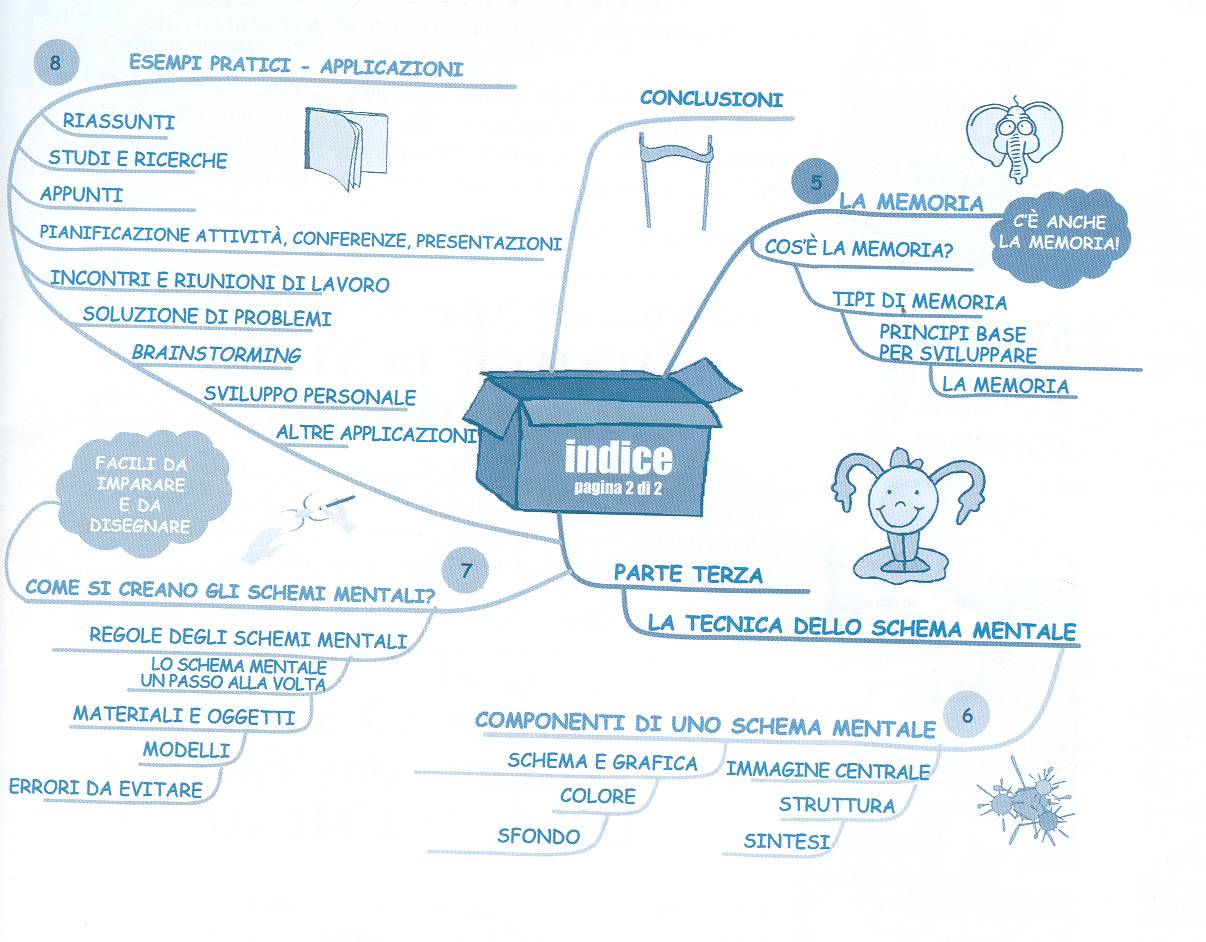 indice
pagina 2 di 2
CONCLUSIONI
5
LA MEMORIA
C'È ANCHE
LA MEMORIA!
COS'È LA MEMORIA?
TIPI DI MEMORIA
PRINCIPI BASE
PER SVILUPPARE
LA MEMORIA
PARTE TERZA
LA TECNICA DELLO SCHEMA MENTALE
6
COMPONENTI DI UNO SCHEMA MENTALE
IMMAGINE CENTRALE
STRUTTURA
SINTESI
SCHEMA E GRAFICA
COLORE
SFONDO
7
COME SI CREANO GLI SCHEMI MENTALI?
FACILI DA
IMPARARE
E DA
DISEGNARE
REGOLE DEGLI SCHEMI MENTALI
LO SCHEMA MENTALE
UN PASSO ALLA VOLTA
MATERIALI E OGGETTI
MODELLI
ERRORI DA EVITARE
8
ESEMPI PRATICI - APPLICAZIONI
RIASSUNTI
STUDI E RICERCHE
APPUNTI
PIANIFICAZIONE ATTIVITÀ, CONFERENZE, PRESENTAZIONI
INCONTRI E RIUNIONI DI LAVORO
SOLUZIONE DI PROBLEMI
BRAINSTORMING
SVILUPPO PERSONALE
ALTRE APPLICAZIONI